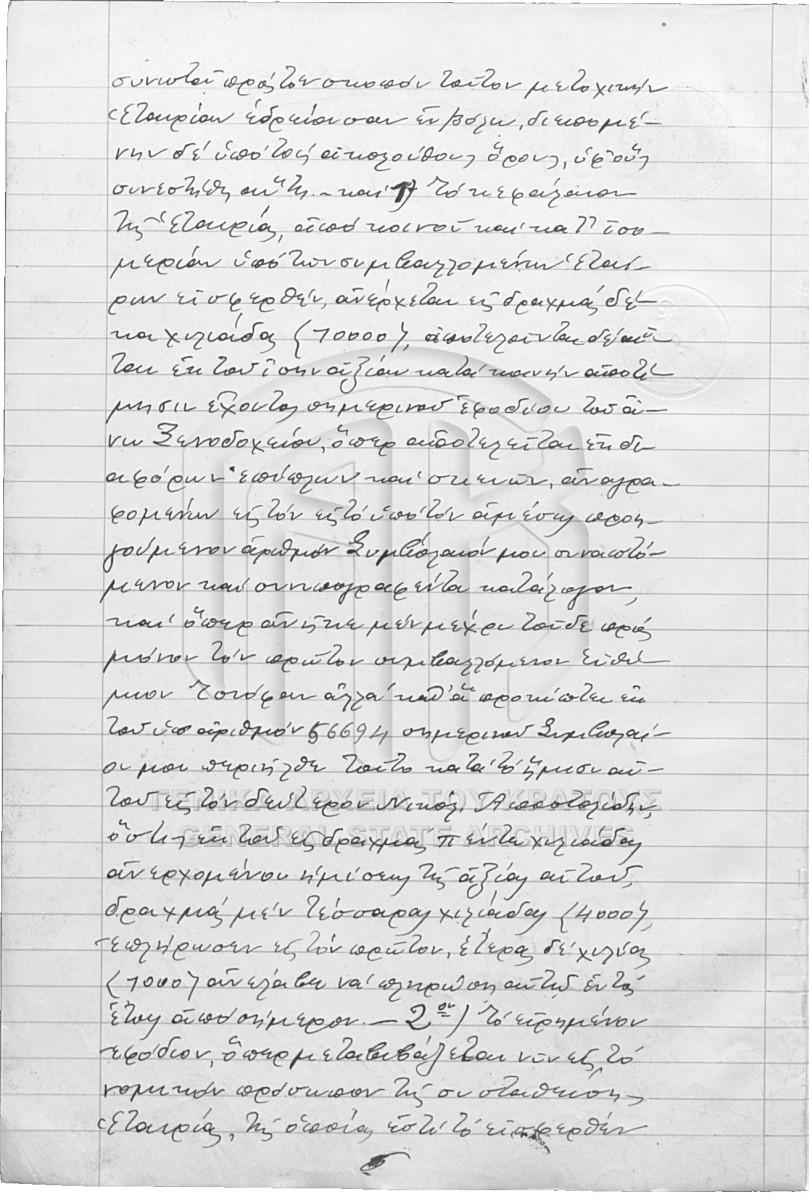 συνιστῶσι πρὸς τὸν σκοπὸν τοῦτον μετοχικὴν
Ἑταιρίαν ἑδρεύουσαν ἐν Βόλῳ, διεπομέ-
νην δὲ ὑπὸ τοὺς ἀκολούθους ὅρους, ὑφ' οὓς
συνεστήθη αὕτη. - καὶ 1) Τὸ κεφάλαιον
τῆς Ἑταιρίας, ἀπὸ κοινοῦ καὶ κατ' ἰσο-
μερίαν ὑπὸ τῶν συμβαλλομένων Ἑταί-
ρων εἰσφερθέν, ἀνέρχεται εἰς δραχμὰς δέ-
κα χιλιάδας (10000), ἀποτελοῦνται δὲ αὗ-
ται ἐκ τοῦ ἴσην ἀξίαν κατὰ κοινὴν ἀποτί-
μησιν ἔχοντος σημερινοῦ ἐφοδίου τοῦ ἄ-
νω Ξενοδοχείου, ὅπερ ἀποτελεῖται ἐκ δι-
αφόρων ἐπίπλων καὶ σκευῶν, ἀναγρα-
φομένων εἰς τὸν εἰς τὸ ὑπὸ τὸν ἀμέσως προη-
γούμενον ἀριθμὸν Συμβόλαιόν μου συναπτό-
μενον καὶ συνυπογραφέντα κατάλογον,
καὶ ὅπερ ἀνῆκε μὲν μέχρι τοῦδε πρὸς
μόνον τὸν πρῶτον συμβαλλόμενον Εὐθύ-
μιον Τσιόφαν ἀλλὰ καθ' ἃ προκύπτει ἐκ
τοῦ ὑπ' ἀριθμὸν 56694 σημερινοῦ Συμβολαί-
ου μου περιῆλθε τοῦτο κατὰ τὸ ἥμισυ αὐ-
τοῦ εἰς τὸν δεύτερον Νικόλ. Ἀποστολίδην,
ὅστις ἐκ τοῦ εἰς δραχμὰς πέντε χιλιάδας
ἀνερχομένου ἡμίσεως τῆς ἀξίας αὐτοῦ,
δραχμὰς μὲν τέσσαρας χιλιάδας (4000),
ἐπλήρωσεν εἰς τὸν πρῶτον, ἑτέρας δὲ χιλίας
(1000) ἀνέλαβε νὰ πληρώσῃ αὐτῷ ἐντὸς
ἔτους ἀπὸ σήμερον. - 2ον) Τὸ εἰρημένον
ἐφόδιον, ὅπερ μεταβιβάζεται νῦν εἰς τὸ
νομικὸν πρόσωπον τῆς συσταθείσης
Ἑταιρίας, τῆς ὁποίας ἐστὶ τὸ εἰσφερθὲν